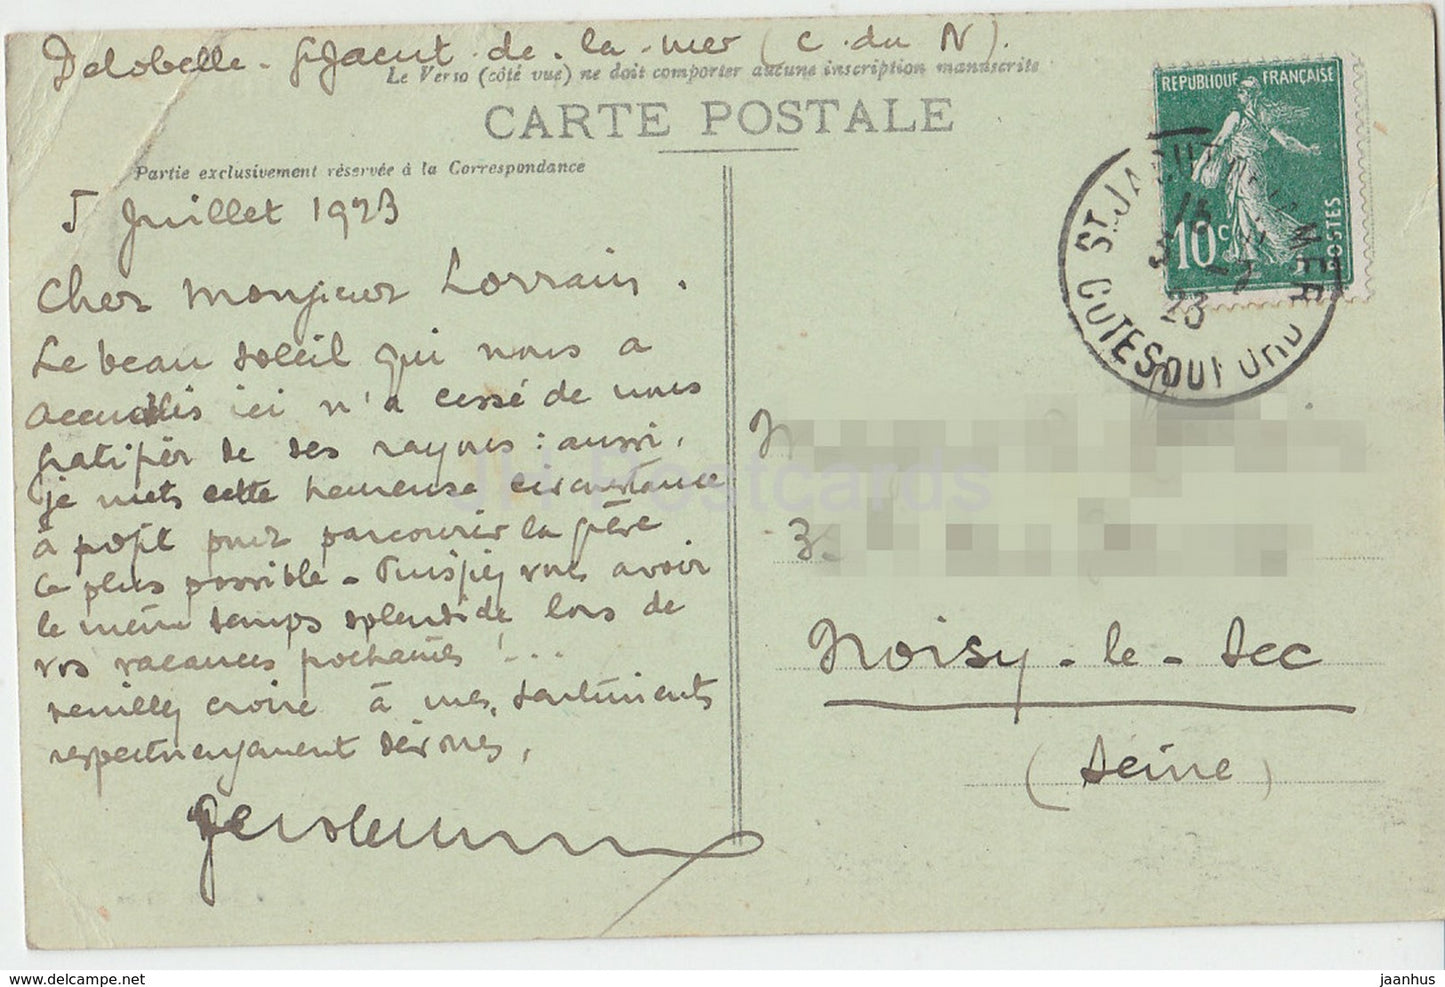 Delobelle - St Jacut - de - la - mer (C. du N).
Le Verso (côté vue) ne doit comporter aucune inscription manuscrite
CARTE POSTALE
Partie exclusivement réservée à la Correspondance
5 Juillet 1923
Cher Monsieur Lorrain.
Le beau soleil qui nous a
accueillis ici n'a cessé de nous
gratifier de ses rayons : aussi,
je mets cette heureuse circonstance
à profit pour parcourir la grève
le plus possible - Puissiez vous avoir
le même temps splendide lors de
vos vacances prochaines !...
veuillez croire à mes sentiments
respectueusement dévoués,
REPUBLIQUE FRANÇAISE
10c
POSTES
ST JACUT DE LA MER
5 - 7
23
COTES DU NORD
JH Postcards
Noisy - le - Sec
(Seine)
www.delcampe.net
jaanhus